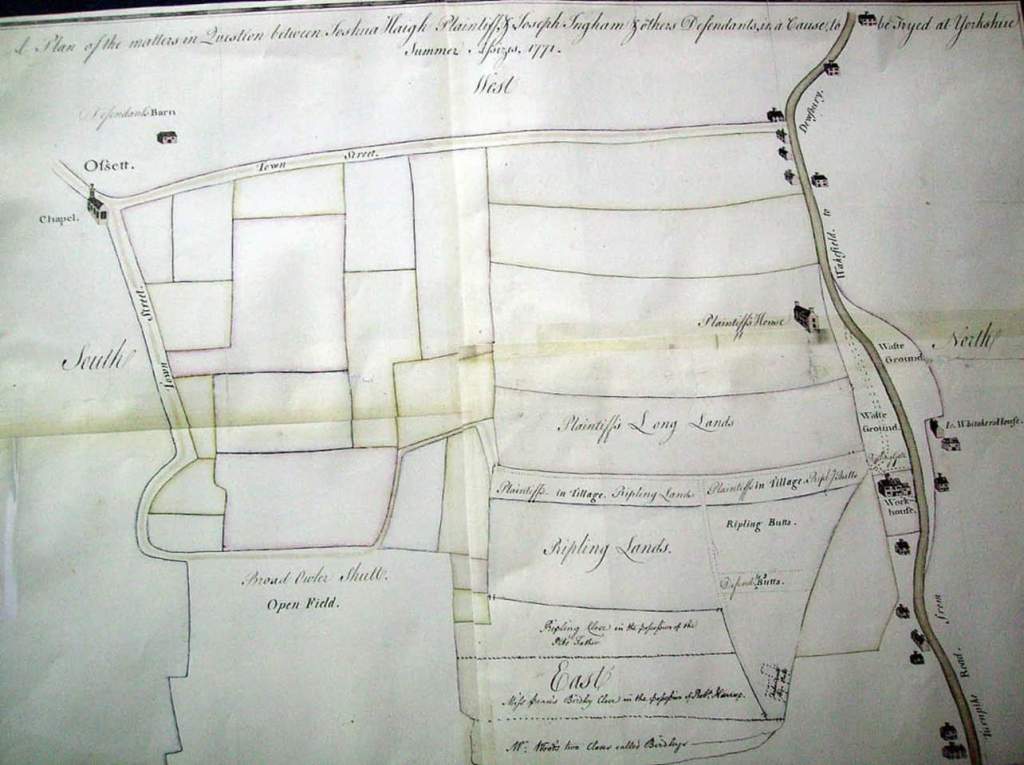 A Plan of the matters in Question between Joshua Haigh Plaintiff & Joseph Ingham & others Defendants, in a Cause, to be Tryed at Yorkshire
Summer Assizes. 1771.
West
Defendants Barn
Ofsett.
Town Street.
Chapel.
Dewsbury.
Wakefield. to
Town Street.
South
Plaintiff's House
North
Waste
Ground.
Waste
Ground.
Is. Whitakers House.
Plaintiff's Long Lands
Plaintiff's in Village. Ripling Lands
Plaintiff's in Village. Ripl. Butts
Work
house.
Ripling Butts.
Ripling Lands.
Broad Owler Shutt.
Open Field.
Defend.ts Butts.
Ripling Close in the possession of the
Plts Father
from
East
Close in the possession of Robt. Harrop.
Turnpike Road.
Mr. Woods two Closes called Birdleys